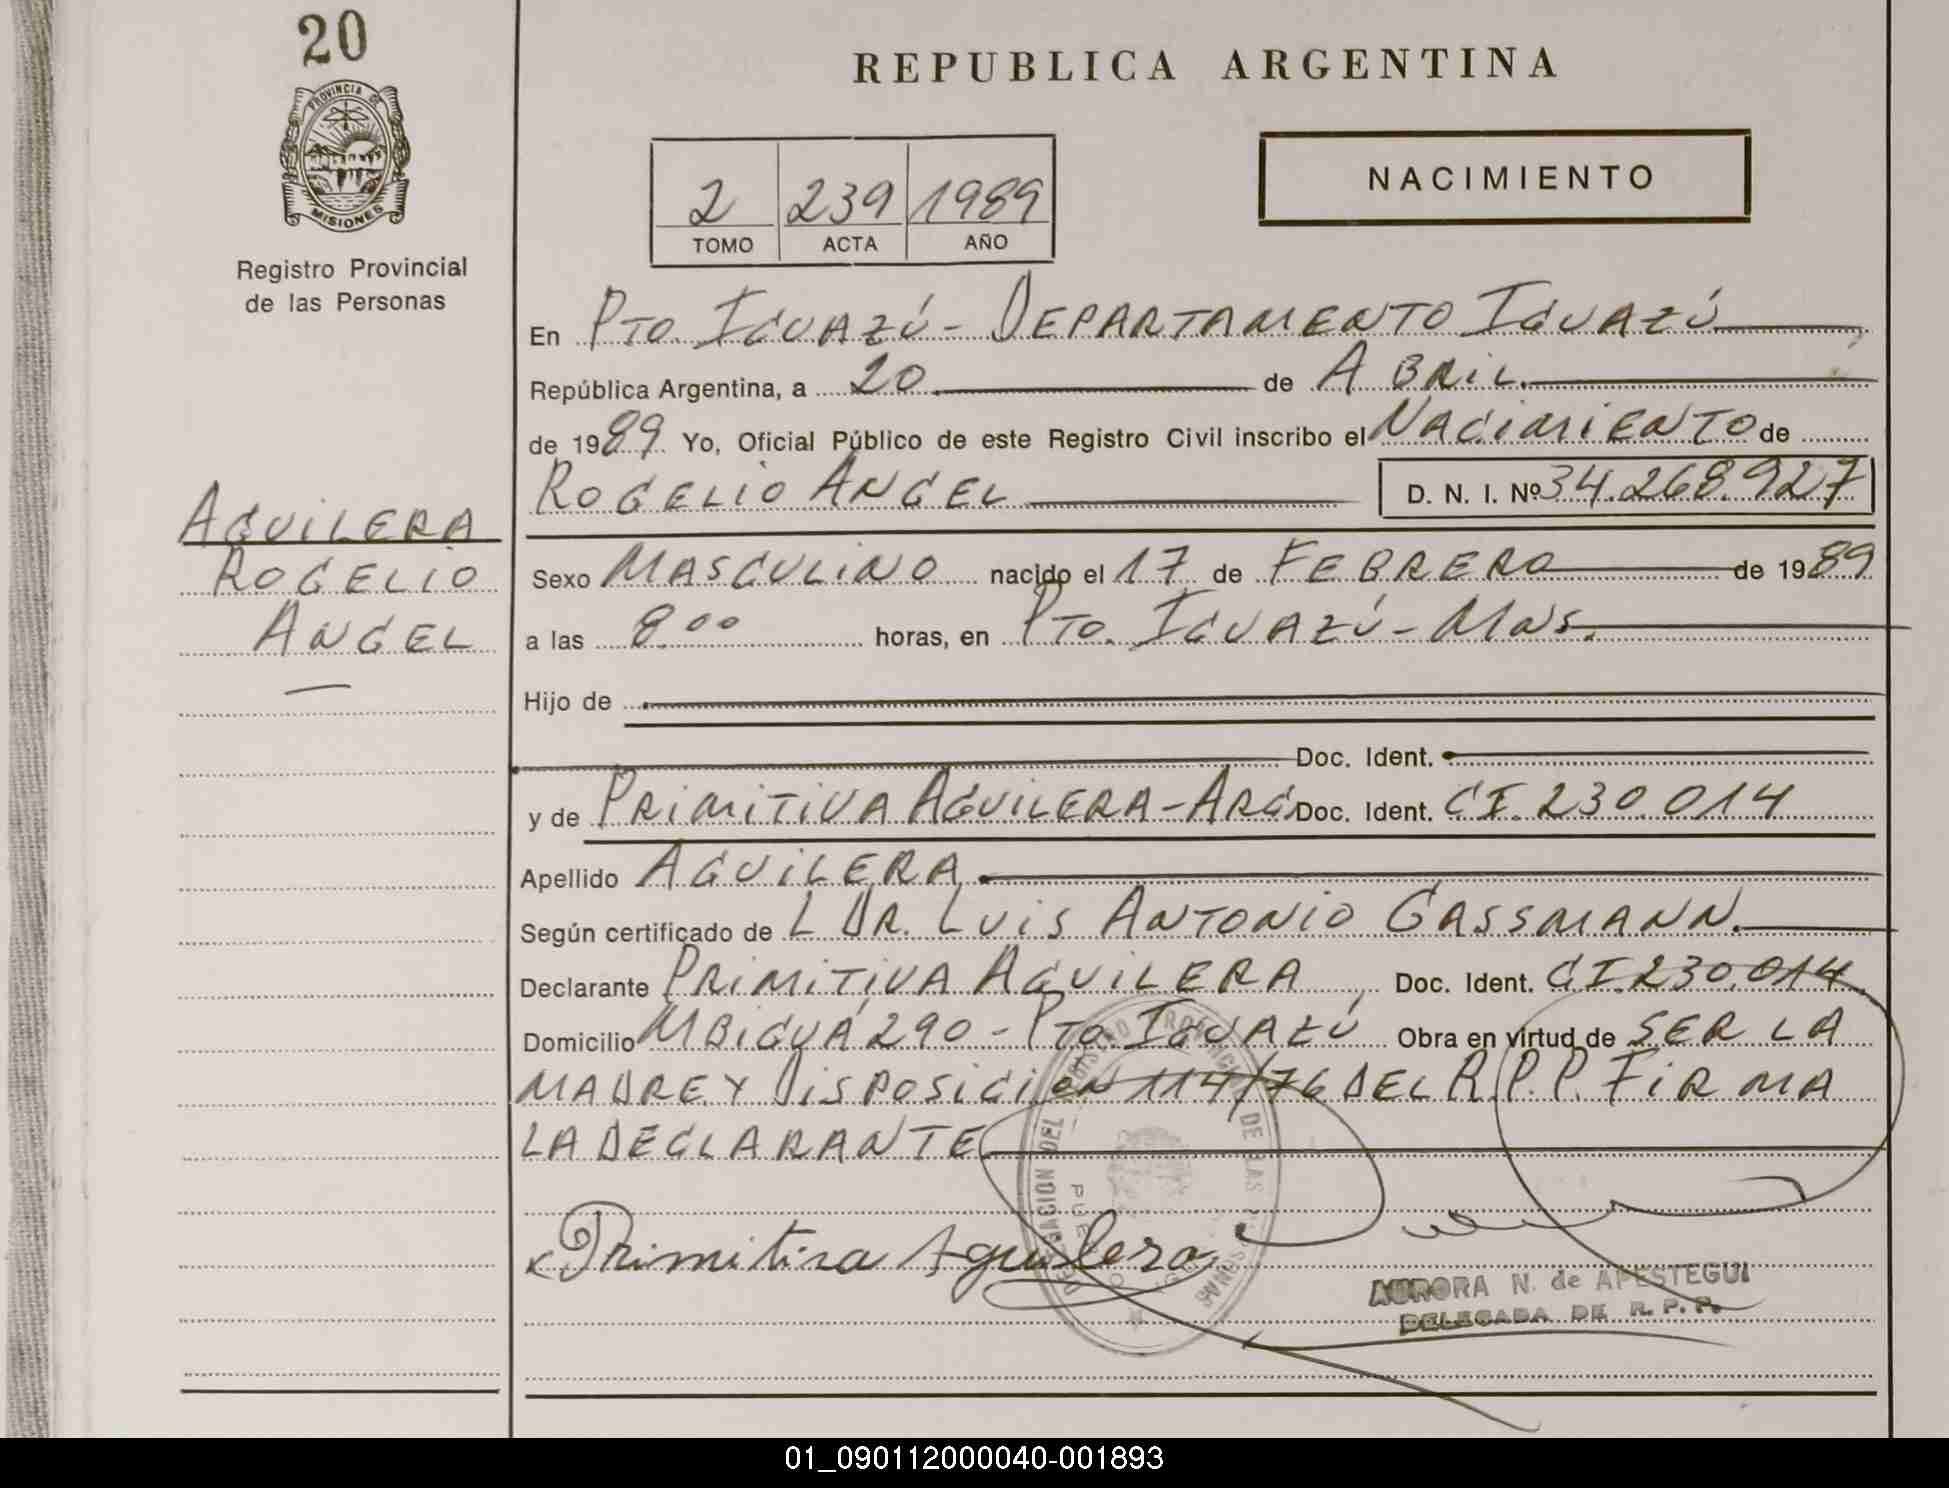 20
PROVINCIA DE
MISIONES
Registro Provincial
de las Personas
AGUILERA
ROGELIO
ANGEL
REPUBLICA ARGENTINA
2 239 1989
TOMO ACTA AÑO
NACIMIENTO
En Pto. Iguazú - Departamento Iguazú
República Argentina, a 20 de Abril.
de 1989 Yo, Oficial Público de este Registro Civil inscribo el Nacimiento de
Rogelio Angel D. N. I. Nº 34.268.927
Sexo Masculino nacido el 17 de Febrero de 1989
a las 8 00 horas, en Pto. Iguazú - Mns.
Hijo de
Doc. Ident.
y de Primitiva Aguilera - Arg Doc. Ident. CI. 230.014
Apellido Aguilera
Según certificado de L Dr. Luis Antonio Gassmann.
Declarante Primitiva Aguilera Doc. Ident. CI. 230.014
Domicilio Mbiguá 290 - Pto. Iguazú Obra en virtud de ser la
madre y Disposicion 114/76 del R.P.P. Firma
la declarante
Primitiva Aguilera
DELEGACION DEL REGISTRO PROVINCIAL DE LAS PERSONAS
AURORA N. de APESTEGUI
DELEGADA DE R. P. P.
01_090112000040-001893